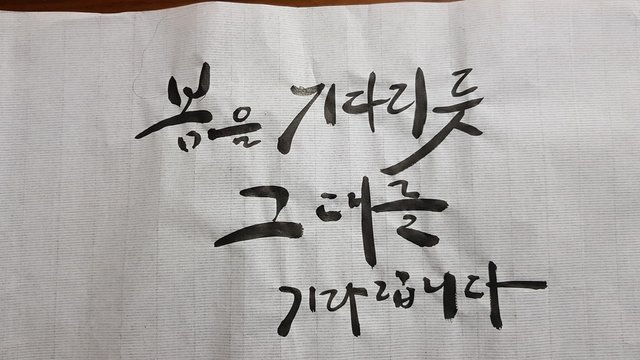 봄을 기다리듯
그대를
기다립니다